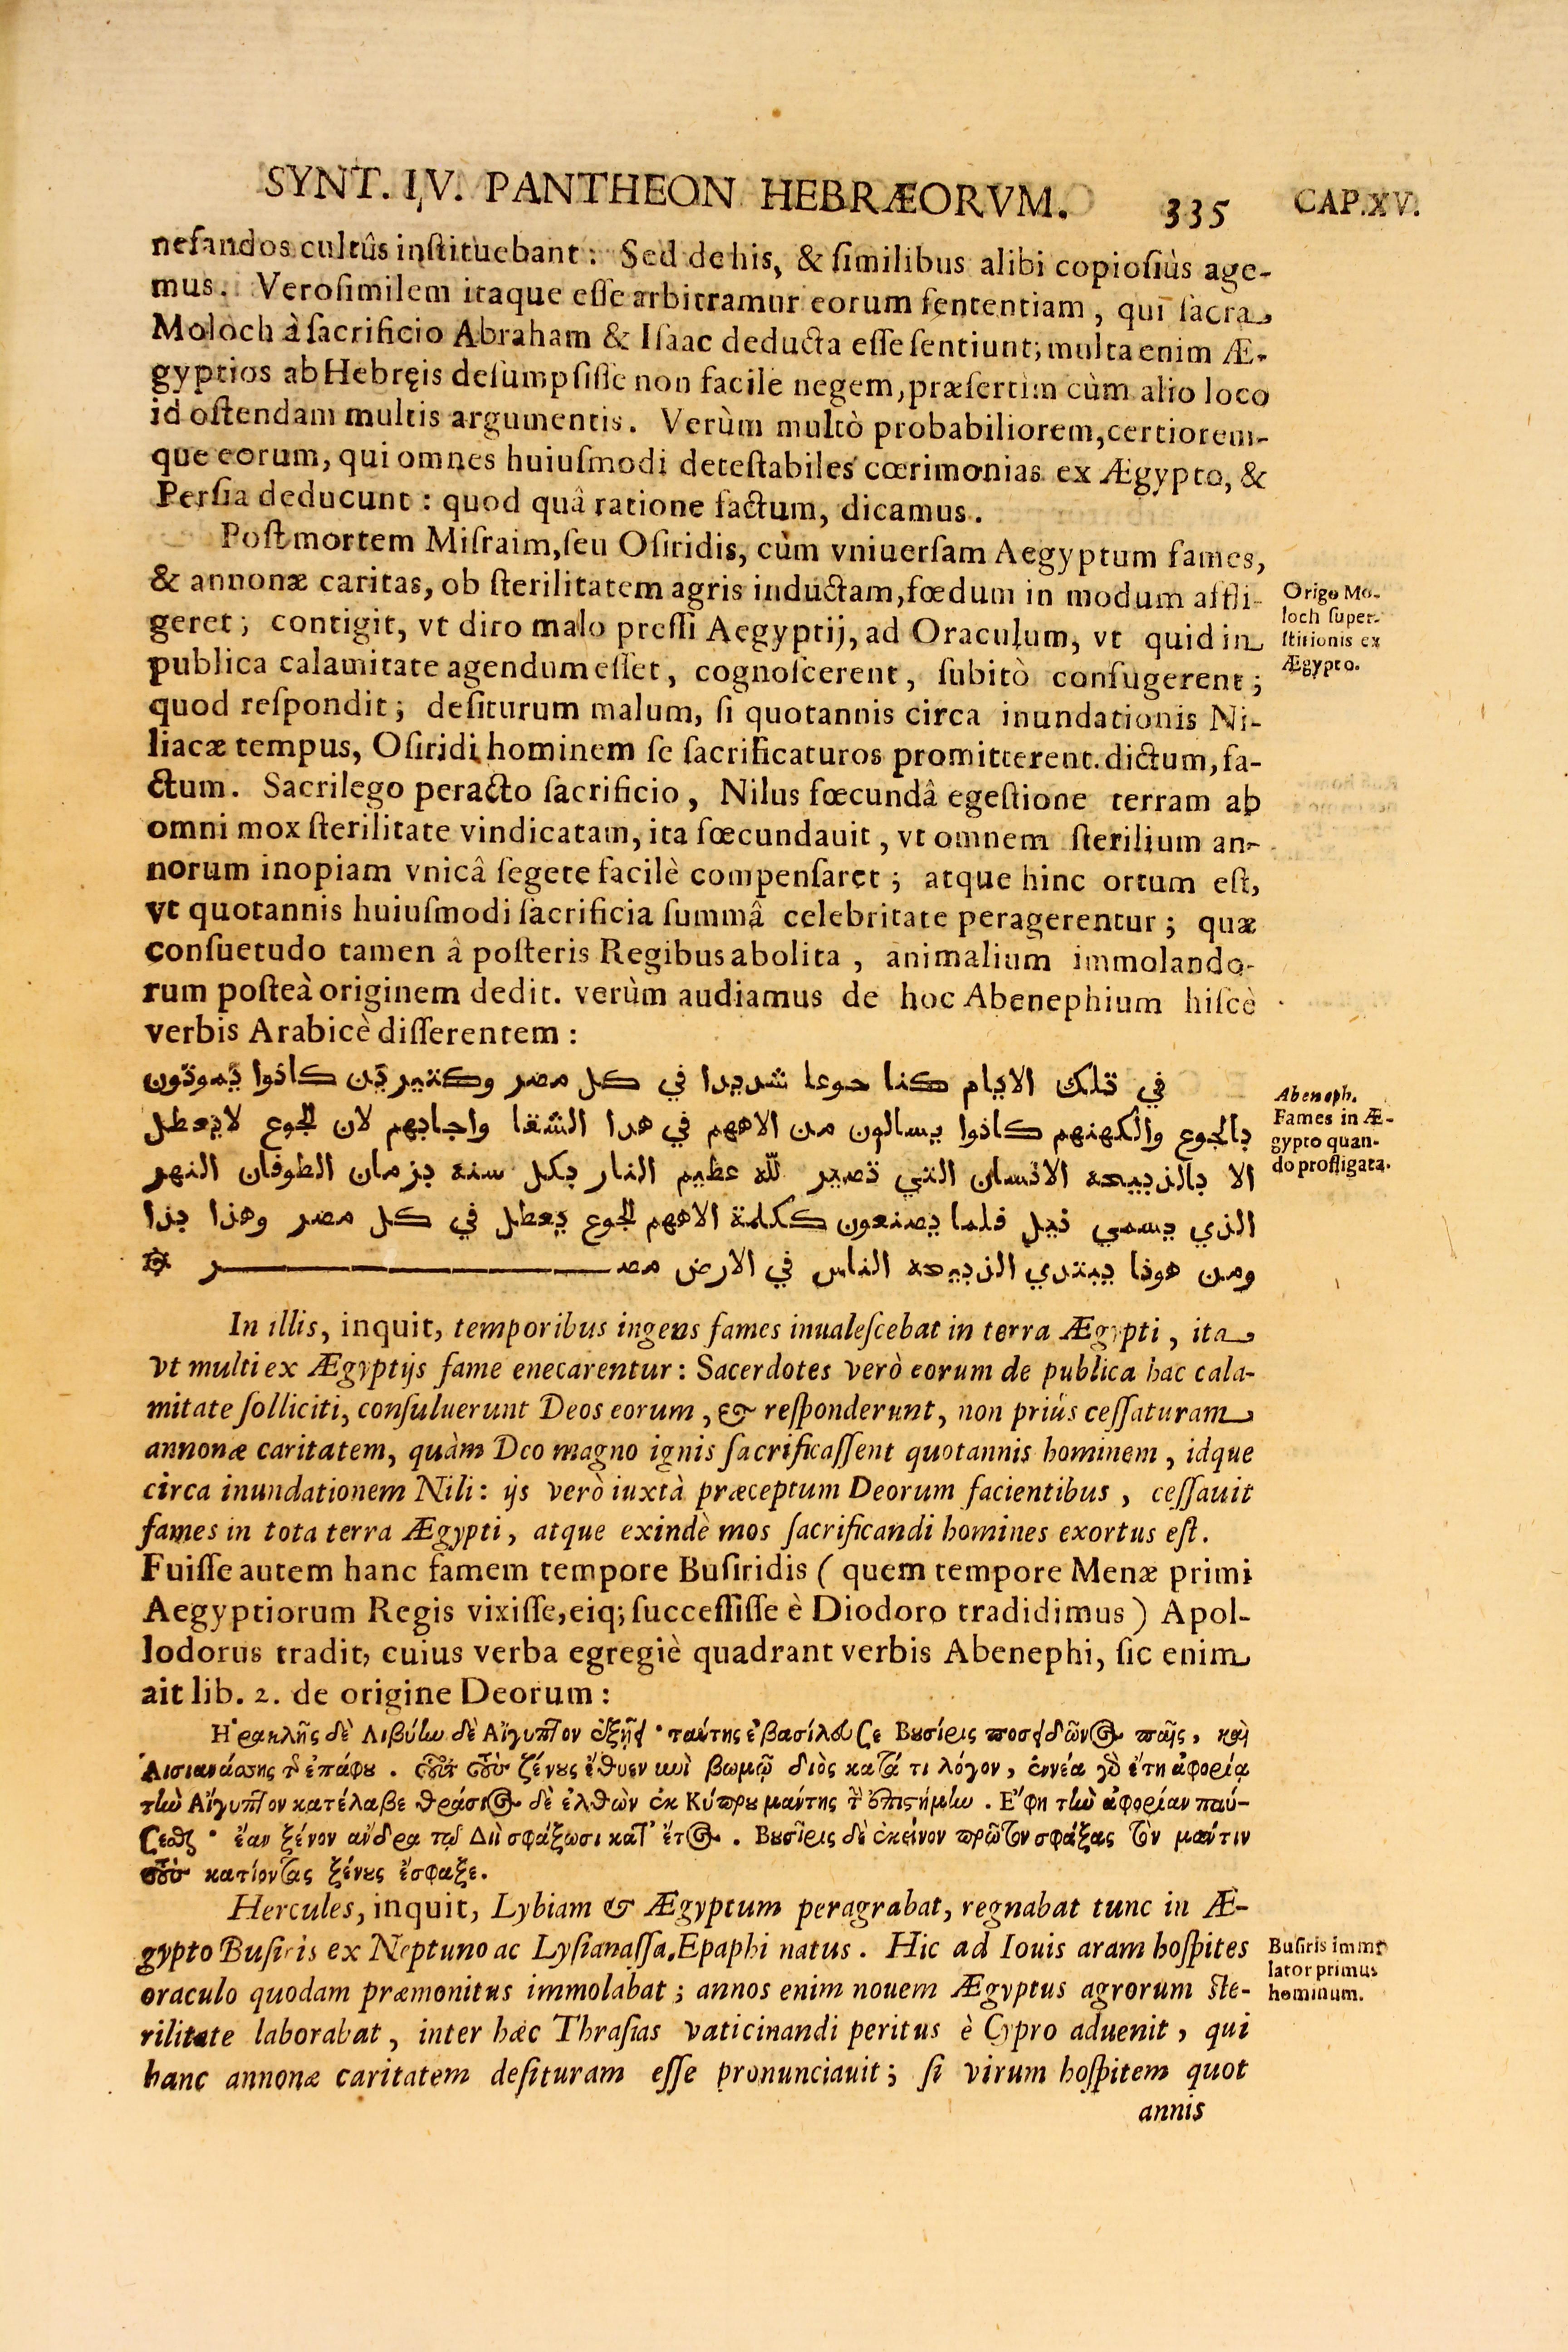 SYNT. IV. PANTHEON HEBRÆORVM. 335 CAP.XV.
nefandos cultûs instituebant: Sed de his, & similibus alibi copiosiùs age-
mus. Verosimilem itaque esse arbitramur eorum sententiam, qui sacra
Moloch à sacrificio Abraham & Isaac deducta esse sentiunt; multa enim Æ-
gyptios ab Hebręis desumpsisse non facilè negem, præsertim cùm alio loco
id ostendam multis argumentis. Verùm multò probabiliorem, certiorem-
que eorum, qui omnes huiusmodi detestabiles cœrimonias ex Ægypto, &
Persia deducunt: quod quâ ratione factum, dicamus.
Post mortem Misraim, seu Osiridis, cùm vniuersam Aegyptum fames,
& annonæ caritas, ob sterilitatem agris inductam, fœdum in modum affli-
geret; contigit, vt diro malo pressi Aegyptij, ad Oraculum, vt quid in
publica calamitate agendum esset, cognoscerent, subitò confugerent;
quod respondit; desiturum malum, si quotannis circa inundationis Ni-
liacæ tempus, Osiridi hominem se sacrificaturos promitterent. dictum, fa-
ctum. Sacrilego peracto sacrificio, Nilus fœcundâ egestione terram ab
omni mox sterilitate vindicatam, ita fœcundauit, vt omnem sterilium an-
norum inopiam vnicâ segete facilè compensaret; atque hinc ortum est,
vt quotannis huiusmodi sacrificia summâ celebritate peragerentur; quæ
consuetudo tamen â posteris Regibus abolita, animalium immolando-
rum posteà originem dedit. verùm audiamus de hoc Abenephium hiscè
verbis Arabicè disserentem:
Origo Mo-
loch super-
stitionis ex
Ægypto.
في تلك الايام كنا حوعا شديدا في كل مصر وكتيريّن كانوا يّموتون
بالجوع والكهنهم كانوا يسالون من الاههم في هدا الشقا واجابهم لان الجوع لايعطل
الا بالذبيحه الانسان التي تصير لله عظيم النار بكل سنه بزمان الطوفان النهر
الذي يسمي نيل فلما يصنعون ككلمة الاههم الجوع يعطل في كل مصر وهذا بذا
ومن هوذا يبتدي الذبيحه الناس في الارض مصر
Abeneph.
Fames in Æ-
gypto quan-
do profligata.
In illis, inquit, temporibus ingens fames inualescebat in terra Ægypti, ita
vt multi ex Ægyptijs fame enecarentur: Sacerdotes verò eorum de publica hac cala-
mitate solliciti, consuluerunt Deos eorum, & responderunt, non priùs cessaturam
annonæ caritatem, quàm Deo magno ignis sacrificassent quotannis hominem, idque
circa inundationem Nili: ijs verò iuxtà præceptum Deorum facientibus, cessauit
fames in tota terra Ægypti, atque exindè mos sacrificandi homines exortus est.
Fuisse autem hanc famem tempore Busiridis (quem tempore Menæ primi
Aegyptiorum Regis vixisse, eiq; successisse è Diodoro tradidimus) Apol-
lodorus tradit, cuius verba egregiè quadrant verbis Abenephi, sic enim
ait lib. 2. de origine Deorum:
Ἡρακλῆς δὲ Λιβύω δὲ Αἴγυπτον ἐξῄει· ταύτης ἐβασίλευσε Βυσίρις ποσειδῶνος παῖς, καὶ
Λισιανάσσης τοῦ ἐπάφου. οὗτος τοὺς ξένους ἔθυεν ἐπὶ βωμῷ διὸς κατά τι λόγον, ἐννέα γὸ ἔτη ἀφορία
τὴν Αἴγυπτον κατέλαβε θράσιος δὲ ἐλθὼν ἐκ Κύπρου μάντης τὴν ἐπιστήμην. Ἔφη τὴν ἀφορίαν παύ-
σεσθαι· ἐαν ξένον ανδρα τῷ Διὶ σφάξωσι κατ' ἔτος. Βουσῖρις δὲ ἐκεῖνον πρῶτον σφάξας τὸν μάντιν
τοὺς κατίοντας ξένους ἔσφαξε.
Hercules, inquit, Lybiam & Ægyptum peragrabat, regnabat tunc in Æ-
gypto Busiris ex Neptuno ac Lysianassa, Epaphi natus. Hic ad Iouis aram hospites
oraculo quodam præmonitus immolabat; annos enim nouem Ægyptus agrorum ste-
rilitate laborabat, inter hæc Thrasias vaticinandi peritus è Cypro aduenit, qui
hanc annonæ caritatem desituram esse pronunciauit; si virum hospitem quot
annis
Busiris immo
lator primus
hominum.